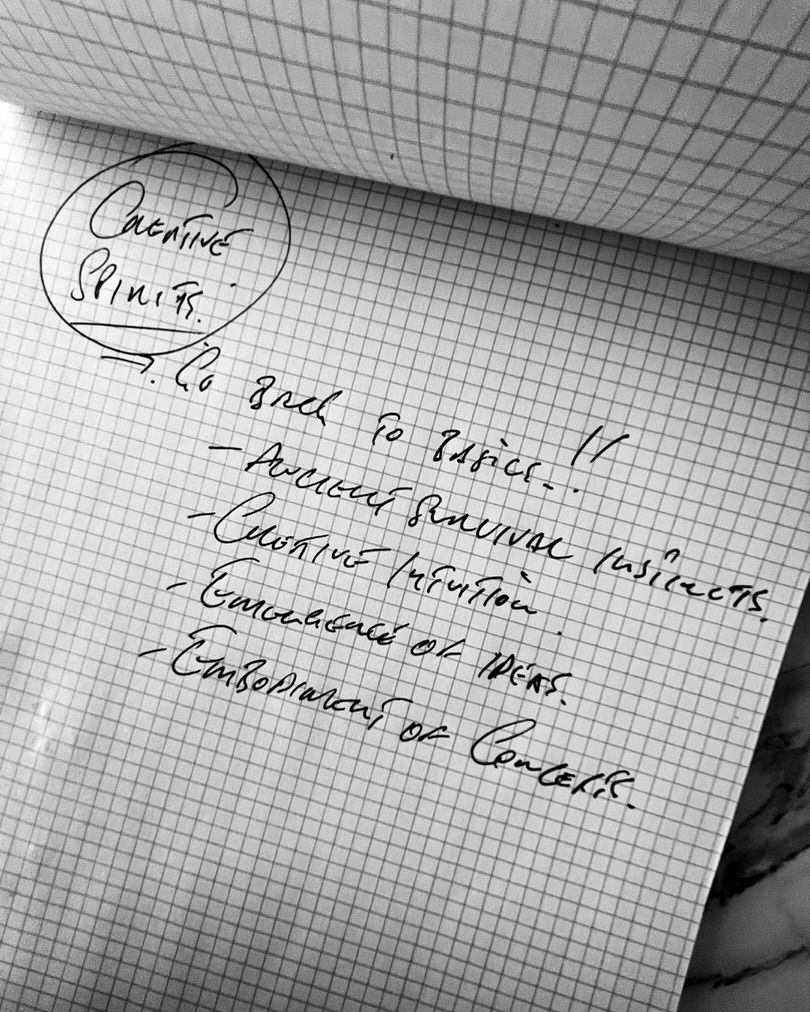 Creative
Spirits.
→ Go Back to Basics..!!
- Ancient Survival Instincts.
- Creative Intuition.
- Emergence of Ideas.
- Embodiment of Concepts.